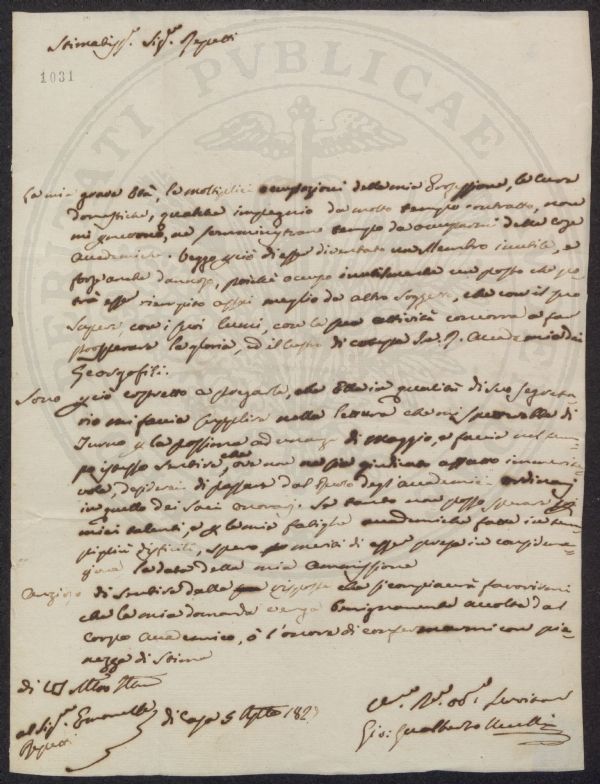 Stimabiss.º Sig.º Repetti
1031
PERITATI PVBLICAE
La mia grave Età, le moltiplici occupazioni della mia Professione, le Cure
domestiche, qualche impegno da molto tempo contratto, non
mi ne somministrano tempo da occuparmi delle cose
Accademiche. Veggo perciò di esser diventato un Membro inutile, e
forse anche dannoso, poichè occupo inutilmente un posto che po
trà esser riempito assai meglio da altro Soggetto, che con il suo
Sapere, con i suoi lumi, con la sua attività concorra a far
prosperare la gloria, ed il lustro di cotesta I. e R. Accademia dei
Georgofili.
Sono perciò costretto a pregarla, che Ella in qualità di Segreta-
rio mi faccia supplire nella lettura che mi spetterebbe di
Turno per la prossima adunanza di Maggio, e faccia nel tem-
po istesso sentire che, ove non ne sia giudicato affatto immerite-
vole, desidererei di passare dal Ruolo degli Accademici ordinarj
in quello dei Soci onorarj. Se tanto non posso sperare
miei talenti, e per le mie fatighe accademiche fatte in tem-
pi più difficili, spero meriti di esser presa in considera-
zione la data della mia ammissione
Anzioso di sentire dalla risposta che si compiacerà favorirmi
che la mia domanda venga benignamente accolta dal
Corpo Accademico, ò l'onore di confermarmi con pie-
nezza di Stima
di
al Sig.º Emanuelle
Repetti
di Casa 5 Aple 182
Gio: Gualberto